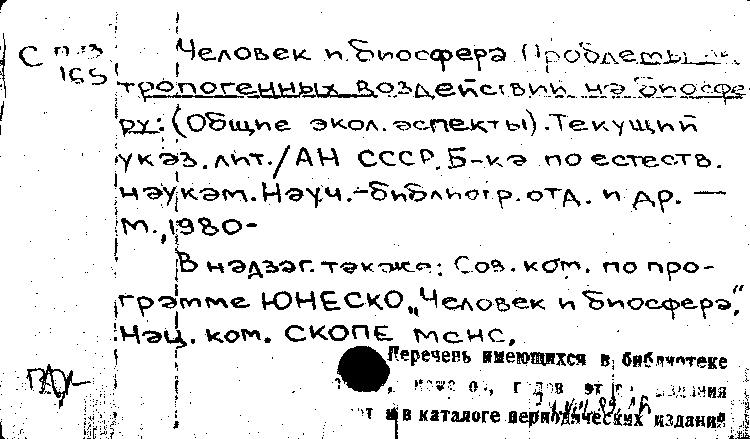 С п.13
165
Человек и биосфера Проблемы ан
тропогенных воздействий на биосфе-
ру: (Общие экол. аспекты). Текущий
указ. лит. / АН СССР. Б-ка по естеств.
наукам. Науч.-библиогр. отд. и др. —
М., 1980-
В надзаг. также: Сов. ком. по про-
грамме ЮНЕСКО „Человек и биосфера",
Нац. ком. СКОПЕ МСНС.
Перечень имеющихся в библиотеке
годов издания
в каталоге периодических изданий